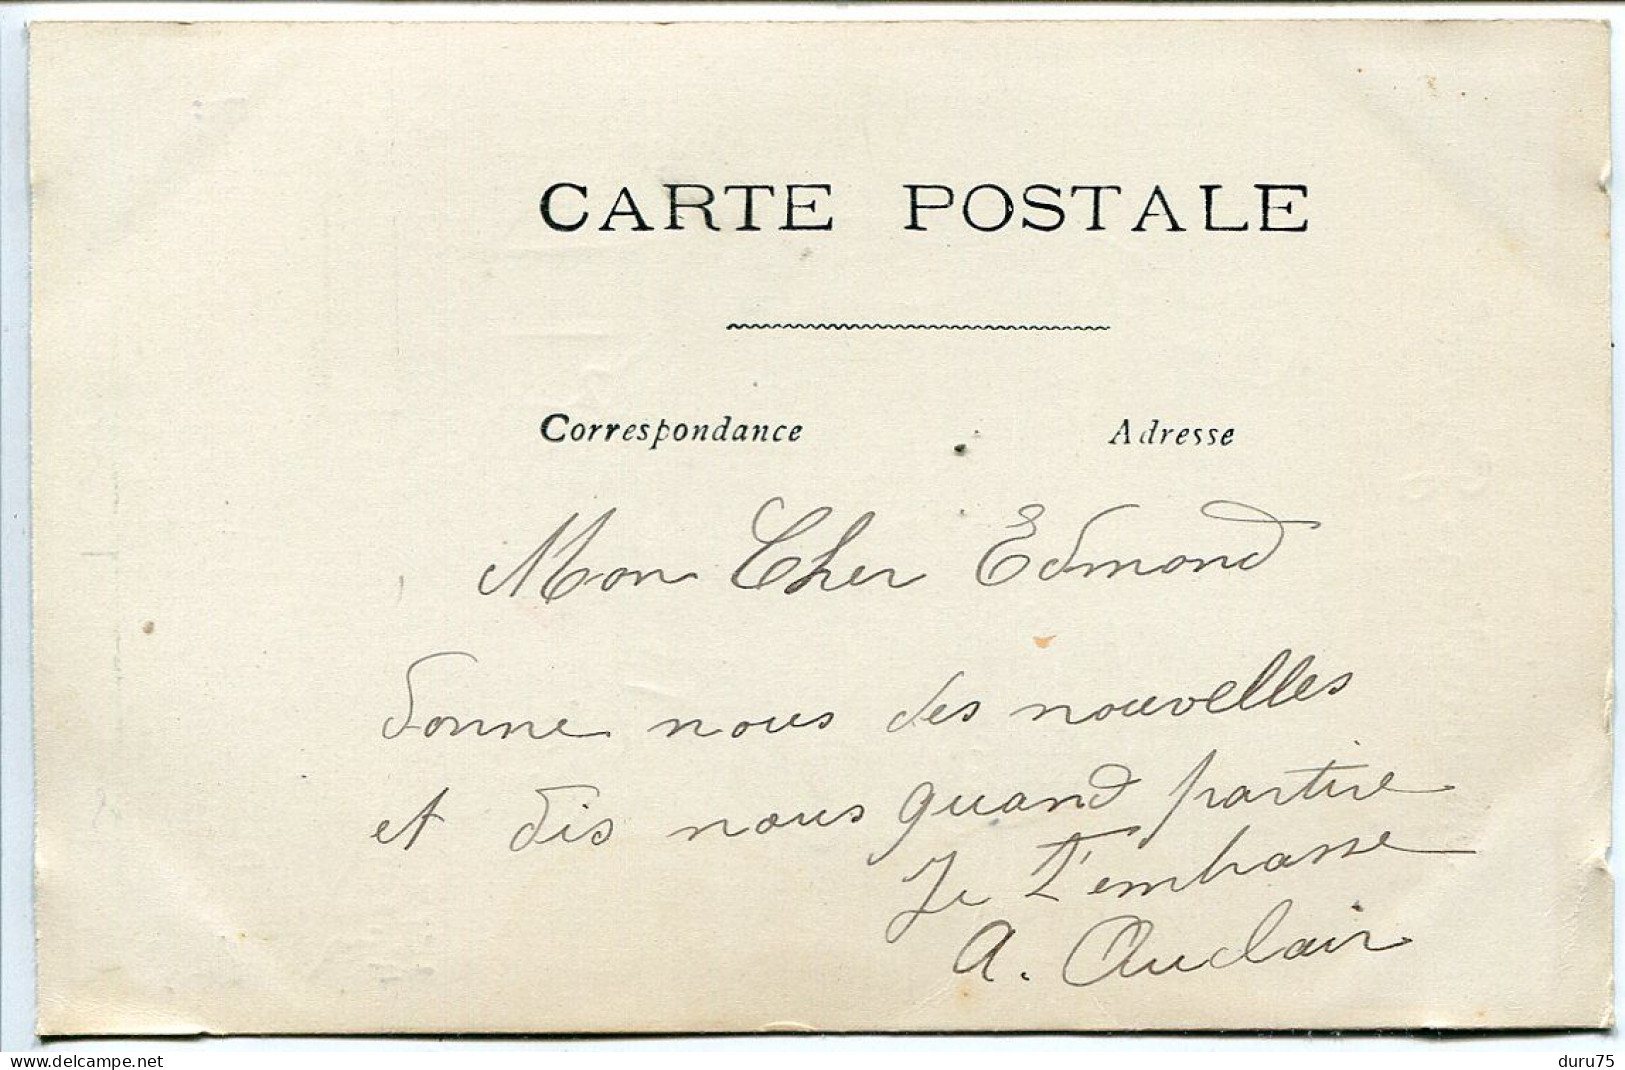 CARTE POSTALE
Correspondance Adresse
Mon Cher Edmond
donne nous des nouvelles
et dis nous quand partire
Je t'embrasse
A. Auclair
www.delcampe.net
duru75